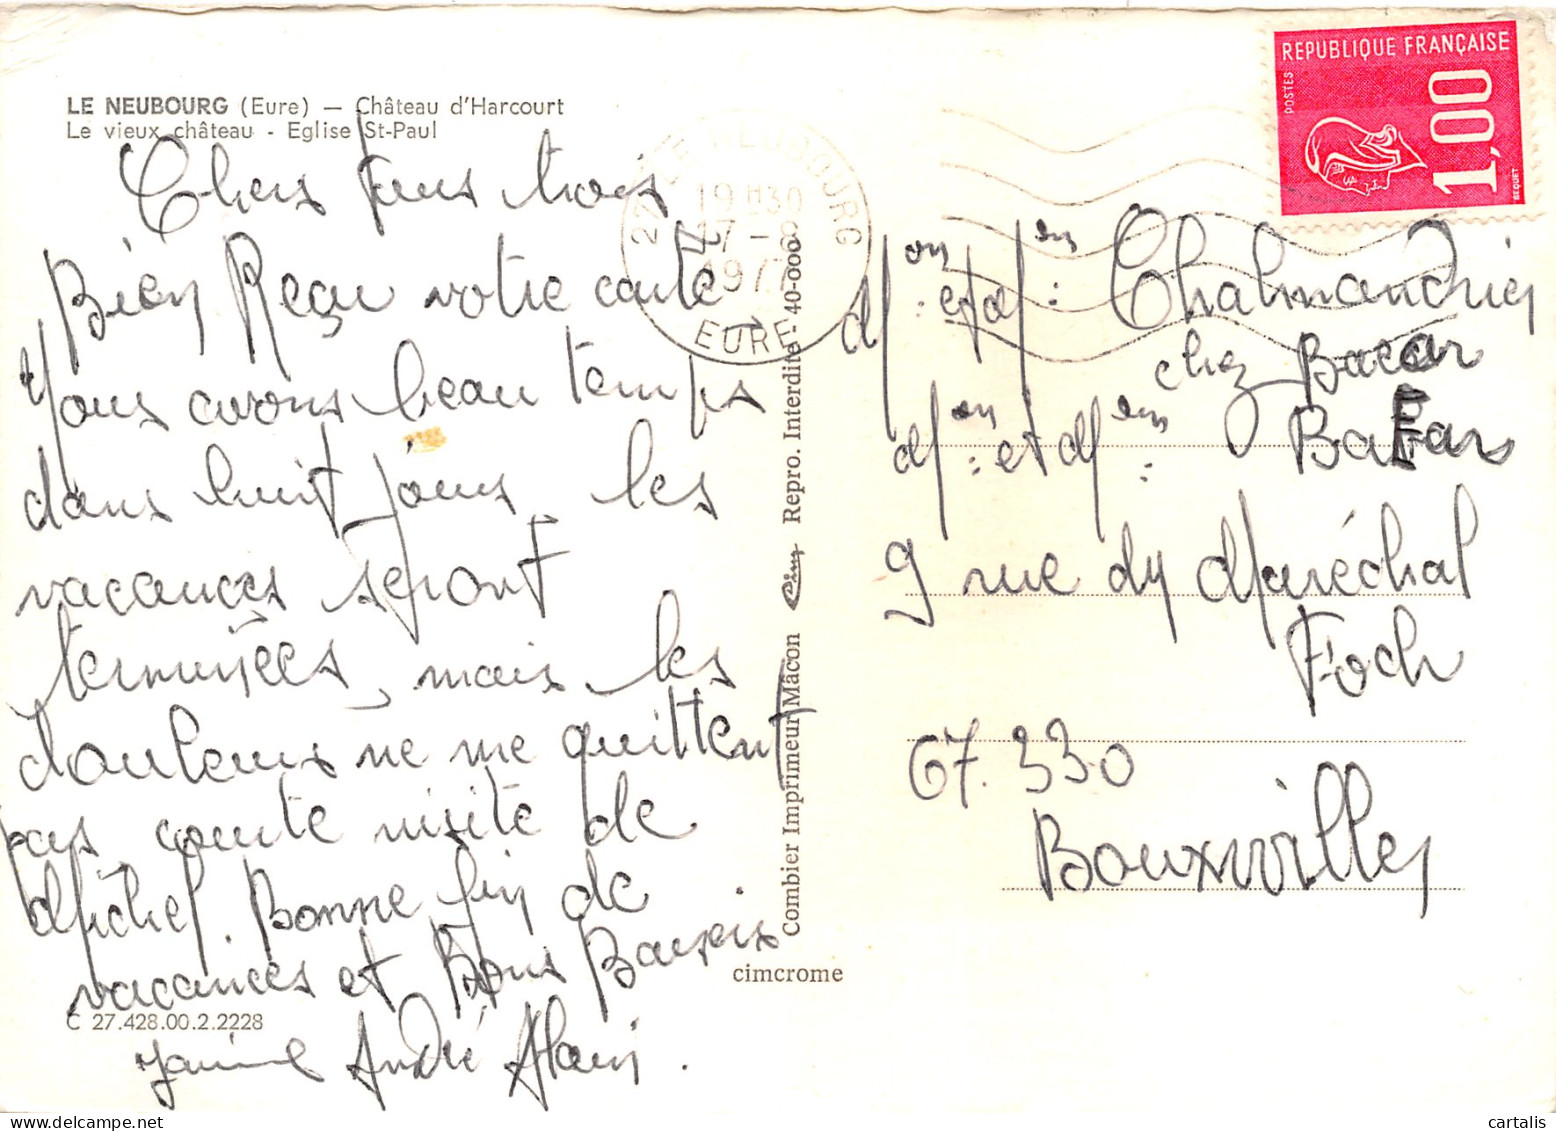 LE NEUBOURG (Eure) — Château d'Harcourt
Le vieux château - Eglise St-Paul
Chers tous trois
Bien Reçu votre carte
Nous avons beau temps
dans huit jours les
vacances seront
terminées, mais les
douleurs ne me quittent
pas courte visite de
Michel. Bonne fin de
vacances et Bons Baisers
Janine André Alain.
C 27.428.00.2.2228
27 LE NEUBOURG
19 H30
17 - 8
1977
EURE
Combier Imprimeur Mâcon Cim Repro. Interdite - 40-000
cimcrome
REPUBLIQUE FRANÇAISE
POSTES
1,00
BEQUET
Mon: et Mme: Chalmandrier
chez
Mon: et Mme:
9 rue du Maréchal
Foch
67.330
Bouxwiller
© cartalis